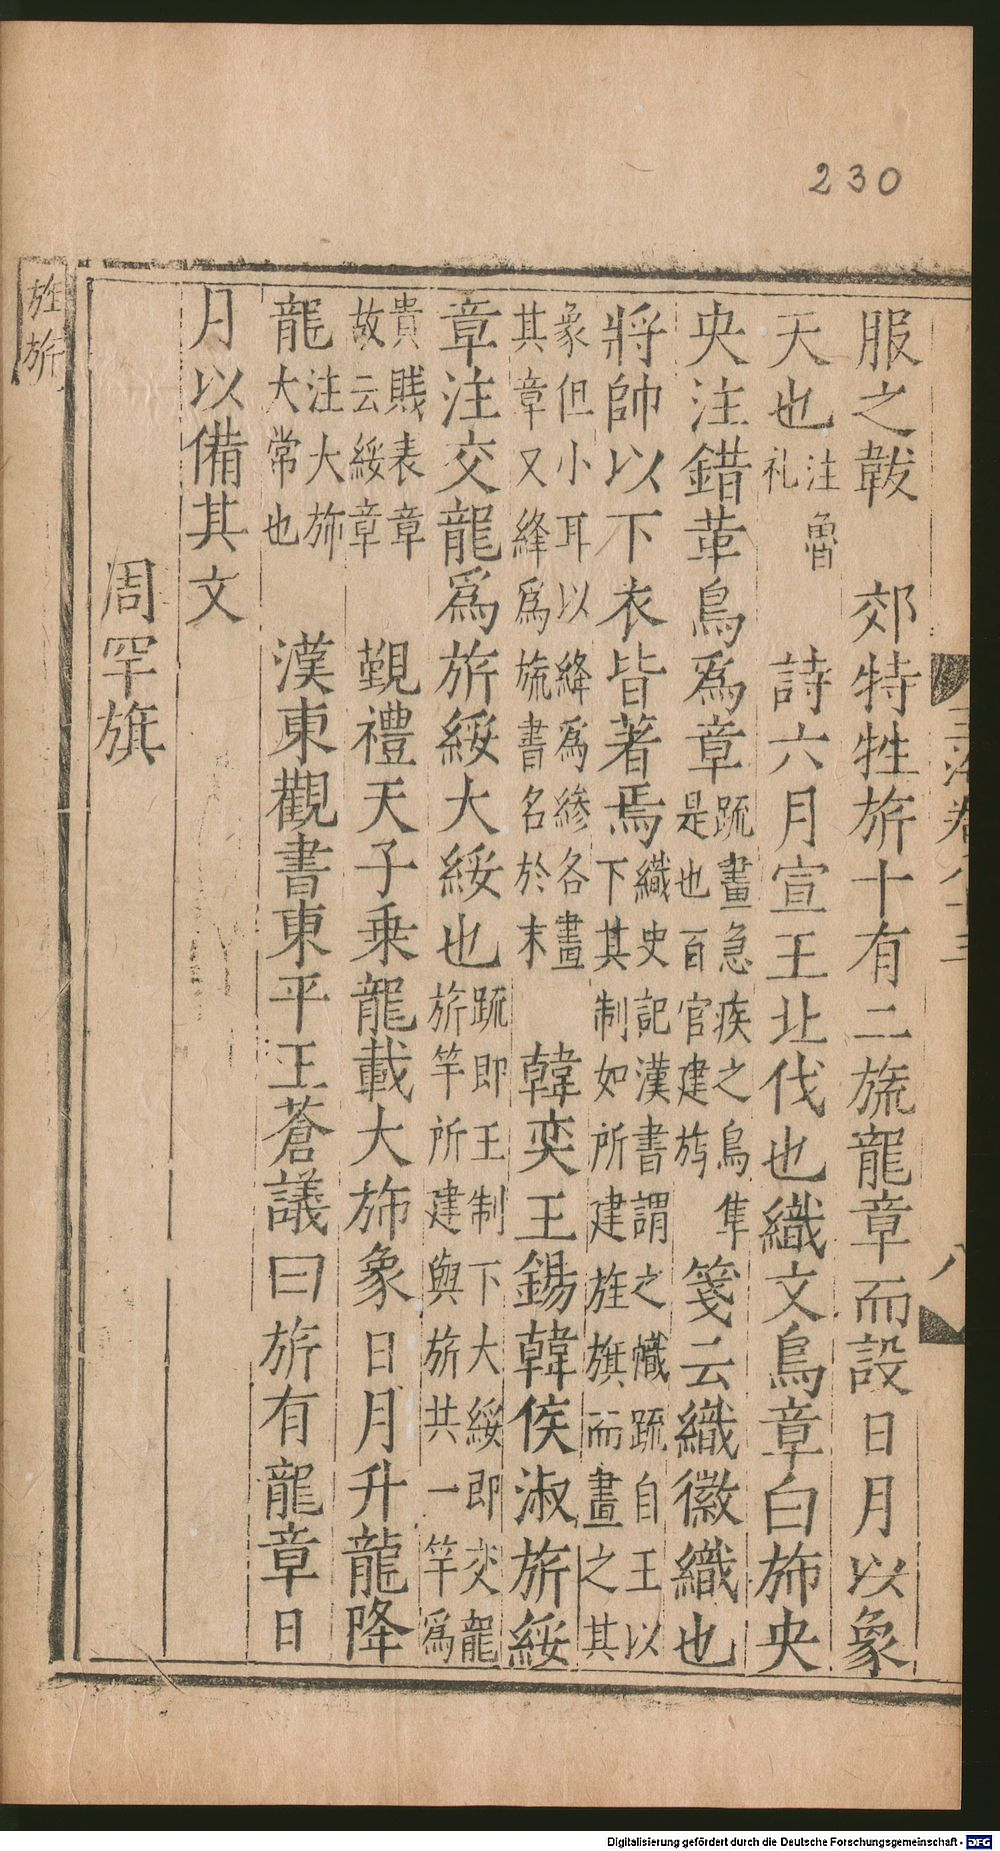 230
服之韍　郊特牲旂十有二旒龍章而設日月以象
天也注魯礼　詩六月宣王北伐也織文鳥章白斾央
央注錯革鳥爲章疏畫急疾之鳥隼是也百官建旟箋云織徽織也
將帥以下衣皆著焉織史記漢書謂之幟疏自王以下其制如所建旌旗而畫之其
象但小耳以絳爲縿各畫其章又絳爲旒書名於末　韓奕王錫韓侯淑旂綏
章注交龍爲旂綏大綏也疏即王制下大綏即交龍旂竿所建與旂共一竿爲
貴賤表章故云綏章　覲禮天子乗龍載大斾象日月升龍降
龍注大斾大常也　漢東觀書東平王蒼議曰旂有龍章日
月以備其文
周罕旗
旌旂
八
Digitalisierung gefördert durch die Deutsche Forschungsgemeinschaft - DFG